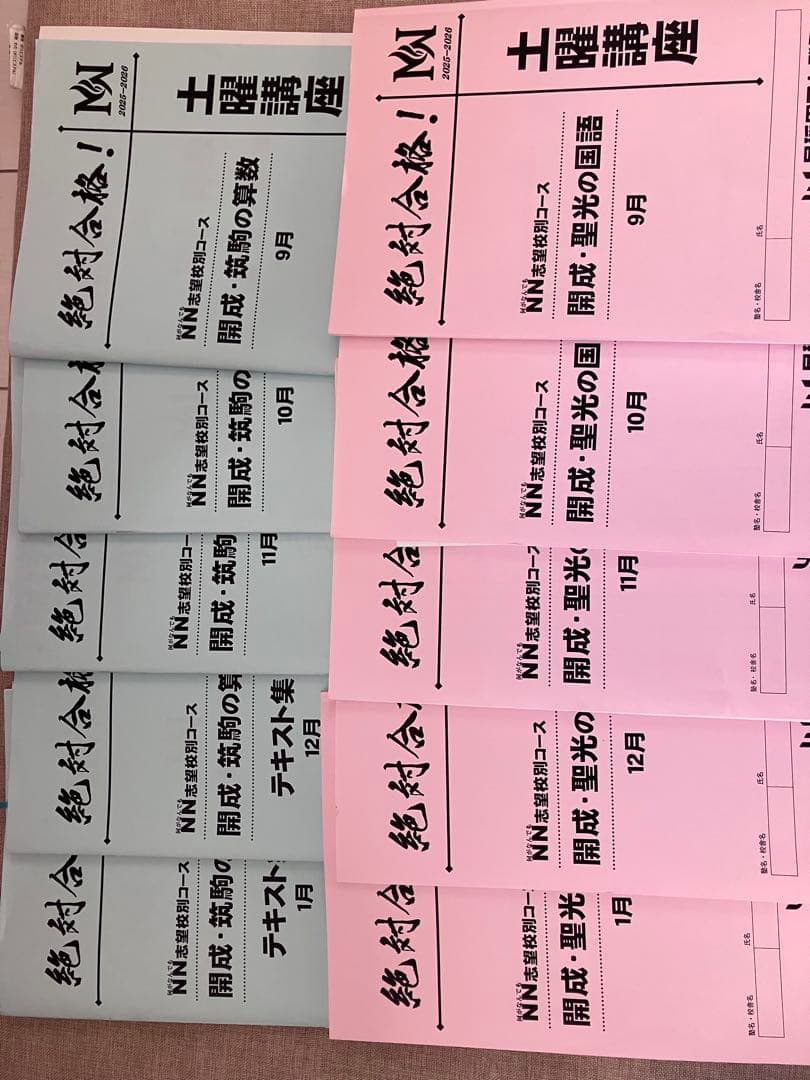 NN
2025-2026
土曜講座
絶対合格!
何がなんでも
NN志望校別コース
開成・筑駒の算数
9月
絶対合格
何がなんでも
NN志望校別コース
開成・筑駒の
10月
絶対合
何がなんでも
NN志望校別コー
開成・筑駒
11月
絶対合格
何がなんでも
NN志望校別コース
開成・筑駒の算
テキスト集
12月
絶対合
何がなんでも
NN志望校別コース
開成・筑駒の
テキスト
1月
NN
2025-2026
土曜講座
絶対合格!
何がなんでも
NN志望校別コース
開成・聖光の国語
9月
塾名・校舎名
氏名
絶対合格
何がなんでも
NN志望校別コース
開成・聖光の国
10月
塾名・校舎名
氏名
絶対合
何がなんでも
NN志望校別コース
開成・聖光の
11月
塾名・校舎名
氏名
絶対合
何がなんでも
NN志望校別コース
開成・聖光の
12月
塾名・校舎名
氏名
絶対合
何がなんでも
NN志望校別コー
開成・聖光
1月
塾名・校舎名
氏名